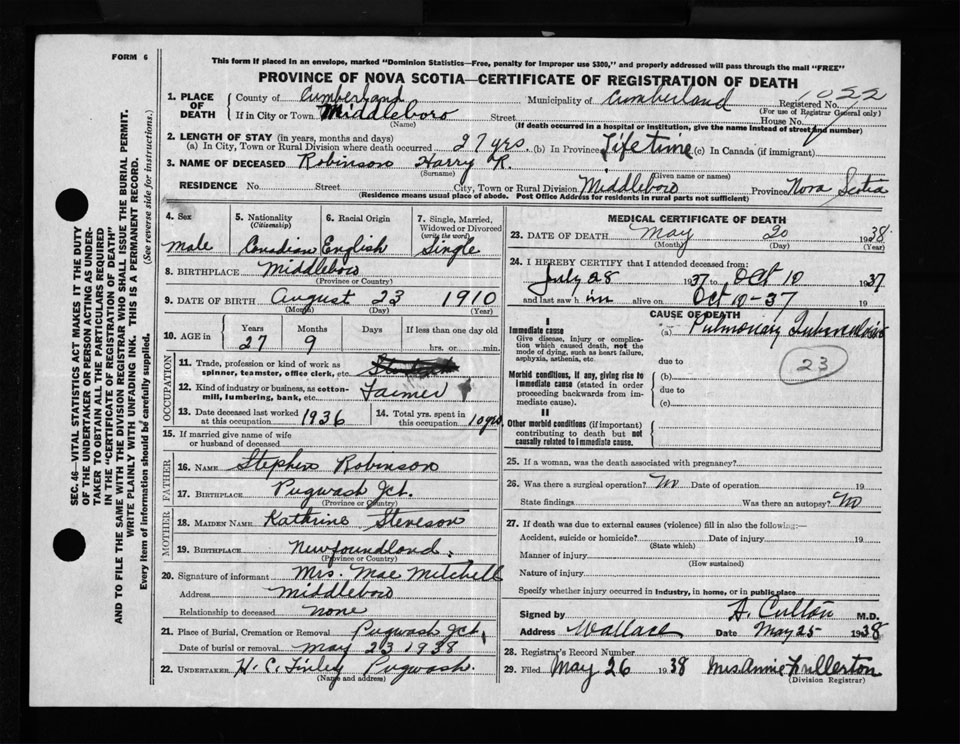 FORM 6
This form if placed in an envelope, marked "Dominion Statistics—Free, penalty for improper use $300," and properly addressed will pass through the mail "FREE"
PROVINCE OF NOVA SCOTIA—CERTIFICATE OF REGISTRATION OF DEATH
1. PLACE OF DEATH
County of Cumberland Municipality of Cumberland Registered No. 1022
(For use of Registrar General only)
If in City or Town Middleboro Street House No.
(Name) (If death occurred in a hospital or institution, give the name instead of street and number)
2. LENGTH OF STAY (in years, months and days)
(a) In City, Town or Rural Division where death occurred 27 yrs. (b) In Province Lifetime (c) In Canada (if immigrant)
3. NAME OF DECEASED Robinson Harry R.
(Surname) (Given name or names)
RESIDENCE No. Street City, Town or Rural Division Middleboro Province Nova Scotia
(Residence means usual place of abode. Post Office Address for residents in rural parts not sufficient)
4. Sex 5. Nationality (Citizenship) 6. Racial Origin 7. Single, Married, Widowed or Divorced (write the word)
male Canadian English Single
8. BIRTHPLACE Middleboro
(Province or Country)
9. DATE OF BIRTH August 23 1910
(Month) (Day) (Year)
10. AGE in Years Months Days If less than one day old
27 9 hrs. or min.
OCCUPATION
11. Trade, profession or kind of work as spinner, teamster, office clerk, etc.
12. Kind of industry or business, as cotton-mill, lumbering, bank, etc. Farmer
13. Date deceased last worked at this occupation 1936 14. Total yrs. spent in this occupation 10 yrs.
15. If married give name of wife or husband of deceased
FATHER
16. NAME Stephen Robinson
17. BIRTHPLACE Pugwash Jct.
(Province or Country)
MOTHER
18. MAIDEN NAME Kathrine Steveson
19. BIRTHPLACE Newfoundland
(Province or Country)
20. Signature of informant Mrs. Mae Mitchell
Address Middleboro
Relationship to deceased none
21. Place of Burial, Cremation or Removal Pugwash Jct.
Date of burial or removal May 23 1938
22. UNDERTAKER H. C. Finley Pugwash.
(Name and address)
MEDICAL CERTIFICATE OF DEATH
23. DATE OF DEATH May 20 1938
(Month) (Day) (Year)
24. I HEREBY CERTIFY that I attended deceased from:
July 28 1937 to Oct 10 1937
and last saw him alive on Oct 10-37 19
CAUSE OF DEATH
I
Immediate cause (a) Pulmonary Tuberculosis
Give disease, injury or complication which caused death, not the mode of dying, such as heart failure, asphyxia, asthenia, etc.
due to
23
Morbid conditions, if any, giving rise to immediate cause (stated in order proceeding backwards from immediate cause).
(b)
due to
(c)
II
Other morbid conditions (if important) contributing to death but not causally related to immediate cause.
25. If a woman, was the death associated with pregnancy?
26. Was there a surgical operation? No Date of operation 19
State findings Was there an autopsy? No
27. If death was due to external causes (violence) fill in also the following:—
Accident, suicide or homicide? Date of injury 19
(State which)
Manner of injury
(How sustained)
Nature of injury
Specify whether injury occurred in industry, in home, or in public place
Signed by A. Culton M.D.
Address Wallace Date May 25 1938
28. Registrar's Record Number
29. Filed May 26 1938 Mrs Annie Fullerton
(Division Registrar)
SEC. 46—VITAL STATISTICS ACT MAKES IT THE DUTY
OF THE UNDERTAKER OR PERSON ACTING AS UNDER-
TAKER TO OBTAIN ALL THE PARTICULARS REQUIRED
IN THE "CERTIFICATE OF REGISTRATION OF DEATH"
AND TO FILE THE SAME WITH THE DIVISION REGISTRAR WHO SHALL ISSUE THE BURIAL PERMIT.
WRITE PLAINLY WITH UNFADING INK. THIS IS A PERMANENT RECORD.
Every item of information should be carefully supplied. (See reverse side for instructions.)